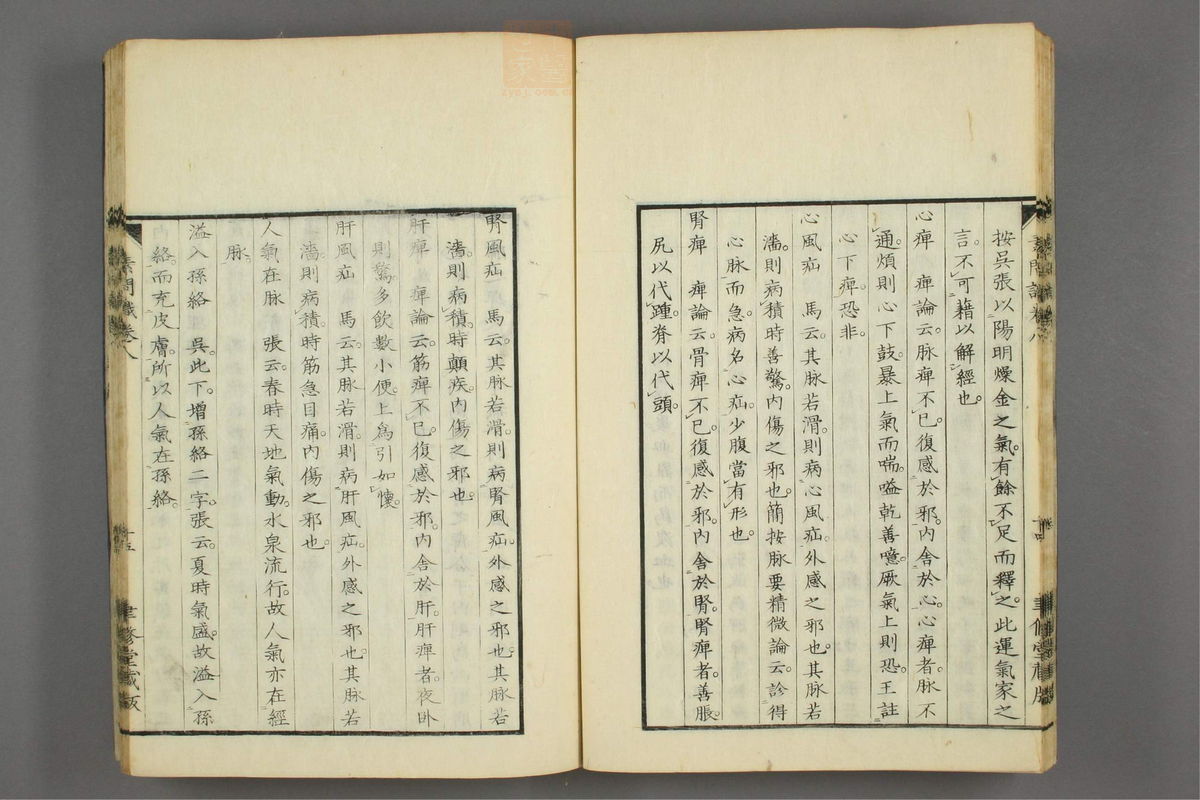 按吳張以陽明燥金之氣。有餘不足而釋之。此運氣家之
言。不可藉以解經也。
心痺　痺論云。脉痺不已。復感於邪。内舍於心。心痺者。脉不
通。煩則心下鼓。暴上氣而喘。嗌乾善噫。厥氣上則恐。王註
心下痺。恐非。
心風疝　馬云。其脉若滑。則病心風疝。外感之邪也。其脉若
濇。則病積。時善驚。内傷之邪也。簡按脉要精微論云。診得
心脉而急。病名心疝。少腹當有形也。
腎痺　痺論云。骨痺不已。復感於邪。内舍於腎。腎痺者。善脹。
尻以代踵。脊以代頭。
腎風疝　馬云。其脉若滑。則病腎風疝。外感之邪也。其脉若
濇。則病積。時顛疾。内傷之邪也。
肝痺　痺論云。筋痺不已。復感於邪。内舍於肝。肝痺者。夜卧
則驚。多飲數小便。上爲引如懷。
肝風疝　馬云。其脉若滑。則病肝風疝。外感之邪也。其脉若
濇。則病積。時筋急目痛。内傷之邪也。
人氣在脉　張云。春時天地氣動。水泉流行。故人氣亦在經
脉。
溢入孫絡　吳。此下。增孫絡二字。張云。夏時氣盛。故溢入孫
絡。而充皮膚。所以人氣在孫絡。
素問識卷八
十五
聿修堂藏版